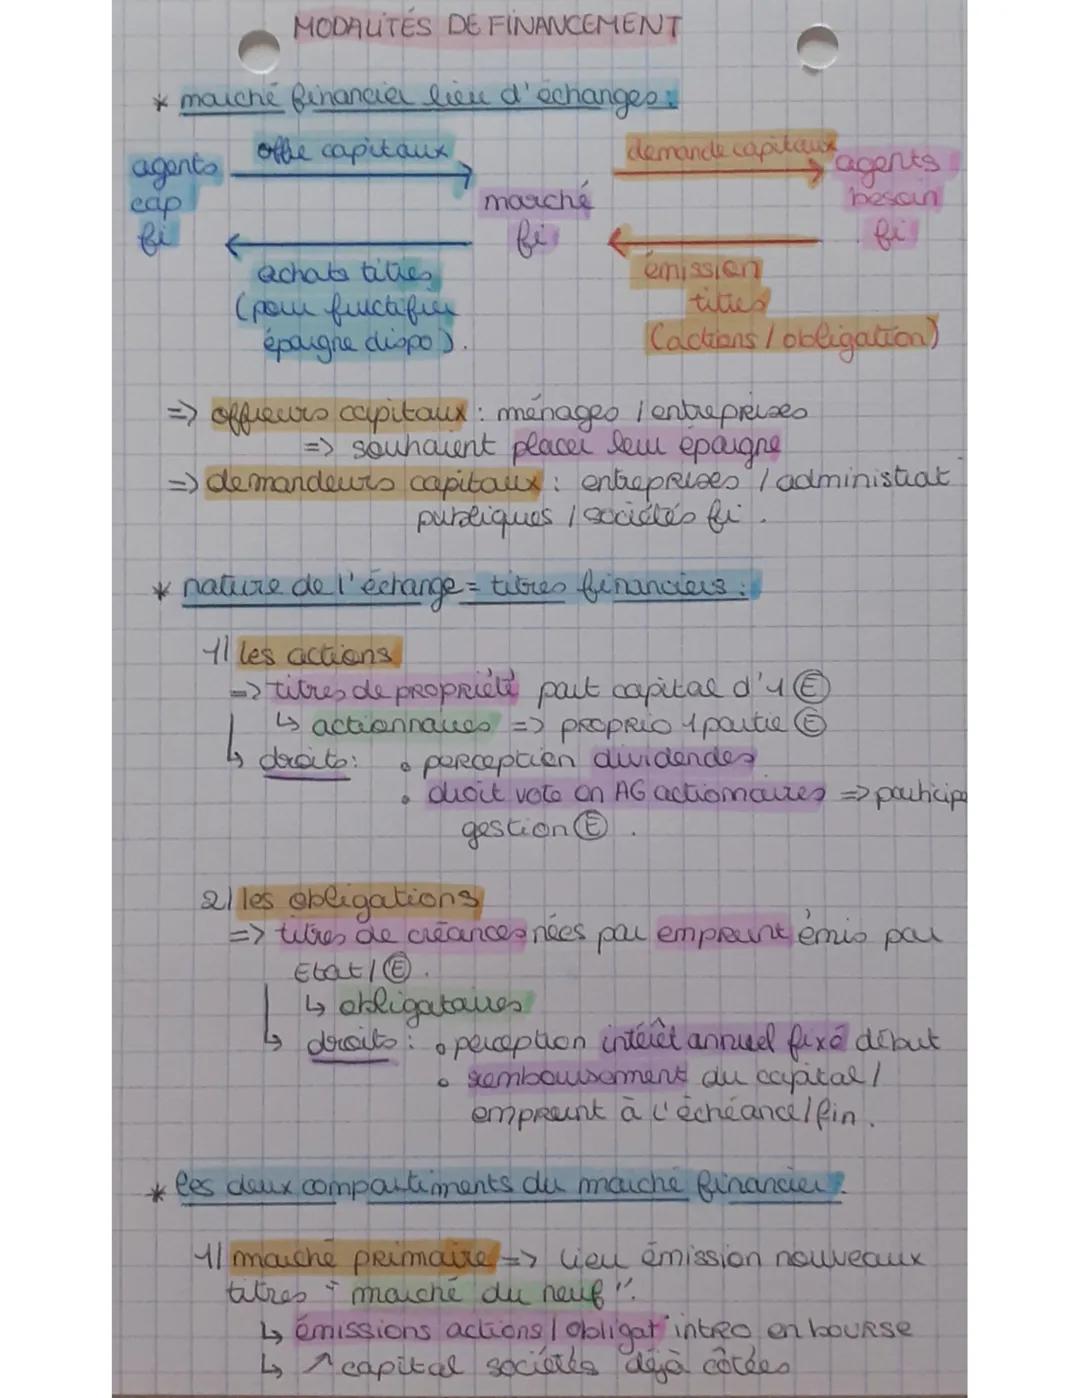 MODALITÉS DE FINANCEMENT
* marché financier lieu d'échanges :
agents cap fi
offre capitaux
achats titres
(pour fructifier
épargne dispo).
marché
fi
demande capitaux
émission
titres
(actions / obligation)
agents
besoin
fi
=> offreurs capitaux : ménages / entreprises
=> souhaient placer leur épargne
=> demandeurs capitaux : entreprises / administrat°
publiques / sociétés fi .
* nature de l'échange = titres financiers :
1/ les actions
=> titres de propriété part capital d'1 Ⓔ
↳ actionnaires => proprio 1 partie Ⓔ
↳ droits : • perception dividendes
• droit vote on AG actionnaires => participe
gestion Ⓔ .
2/ les obligations
=> titres de créances nées par emprunt émis par
Etat / Ⓔ .
↳ obligataires
↳ droits : • perception intérêt annuel fixé début
• remboursement du capital /
emprunt à l'échéance/fin .
* les deux compartiments du marché financier :
1/ marché primaire => lieu émission nouveaux
titres "marché du neuf".
↳ émissions actions / obligat° intro en bourse
↳ ↗ capital sociétés déjà côtées